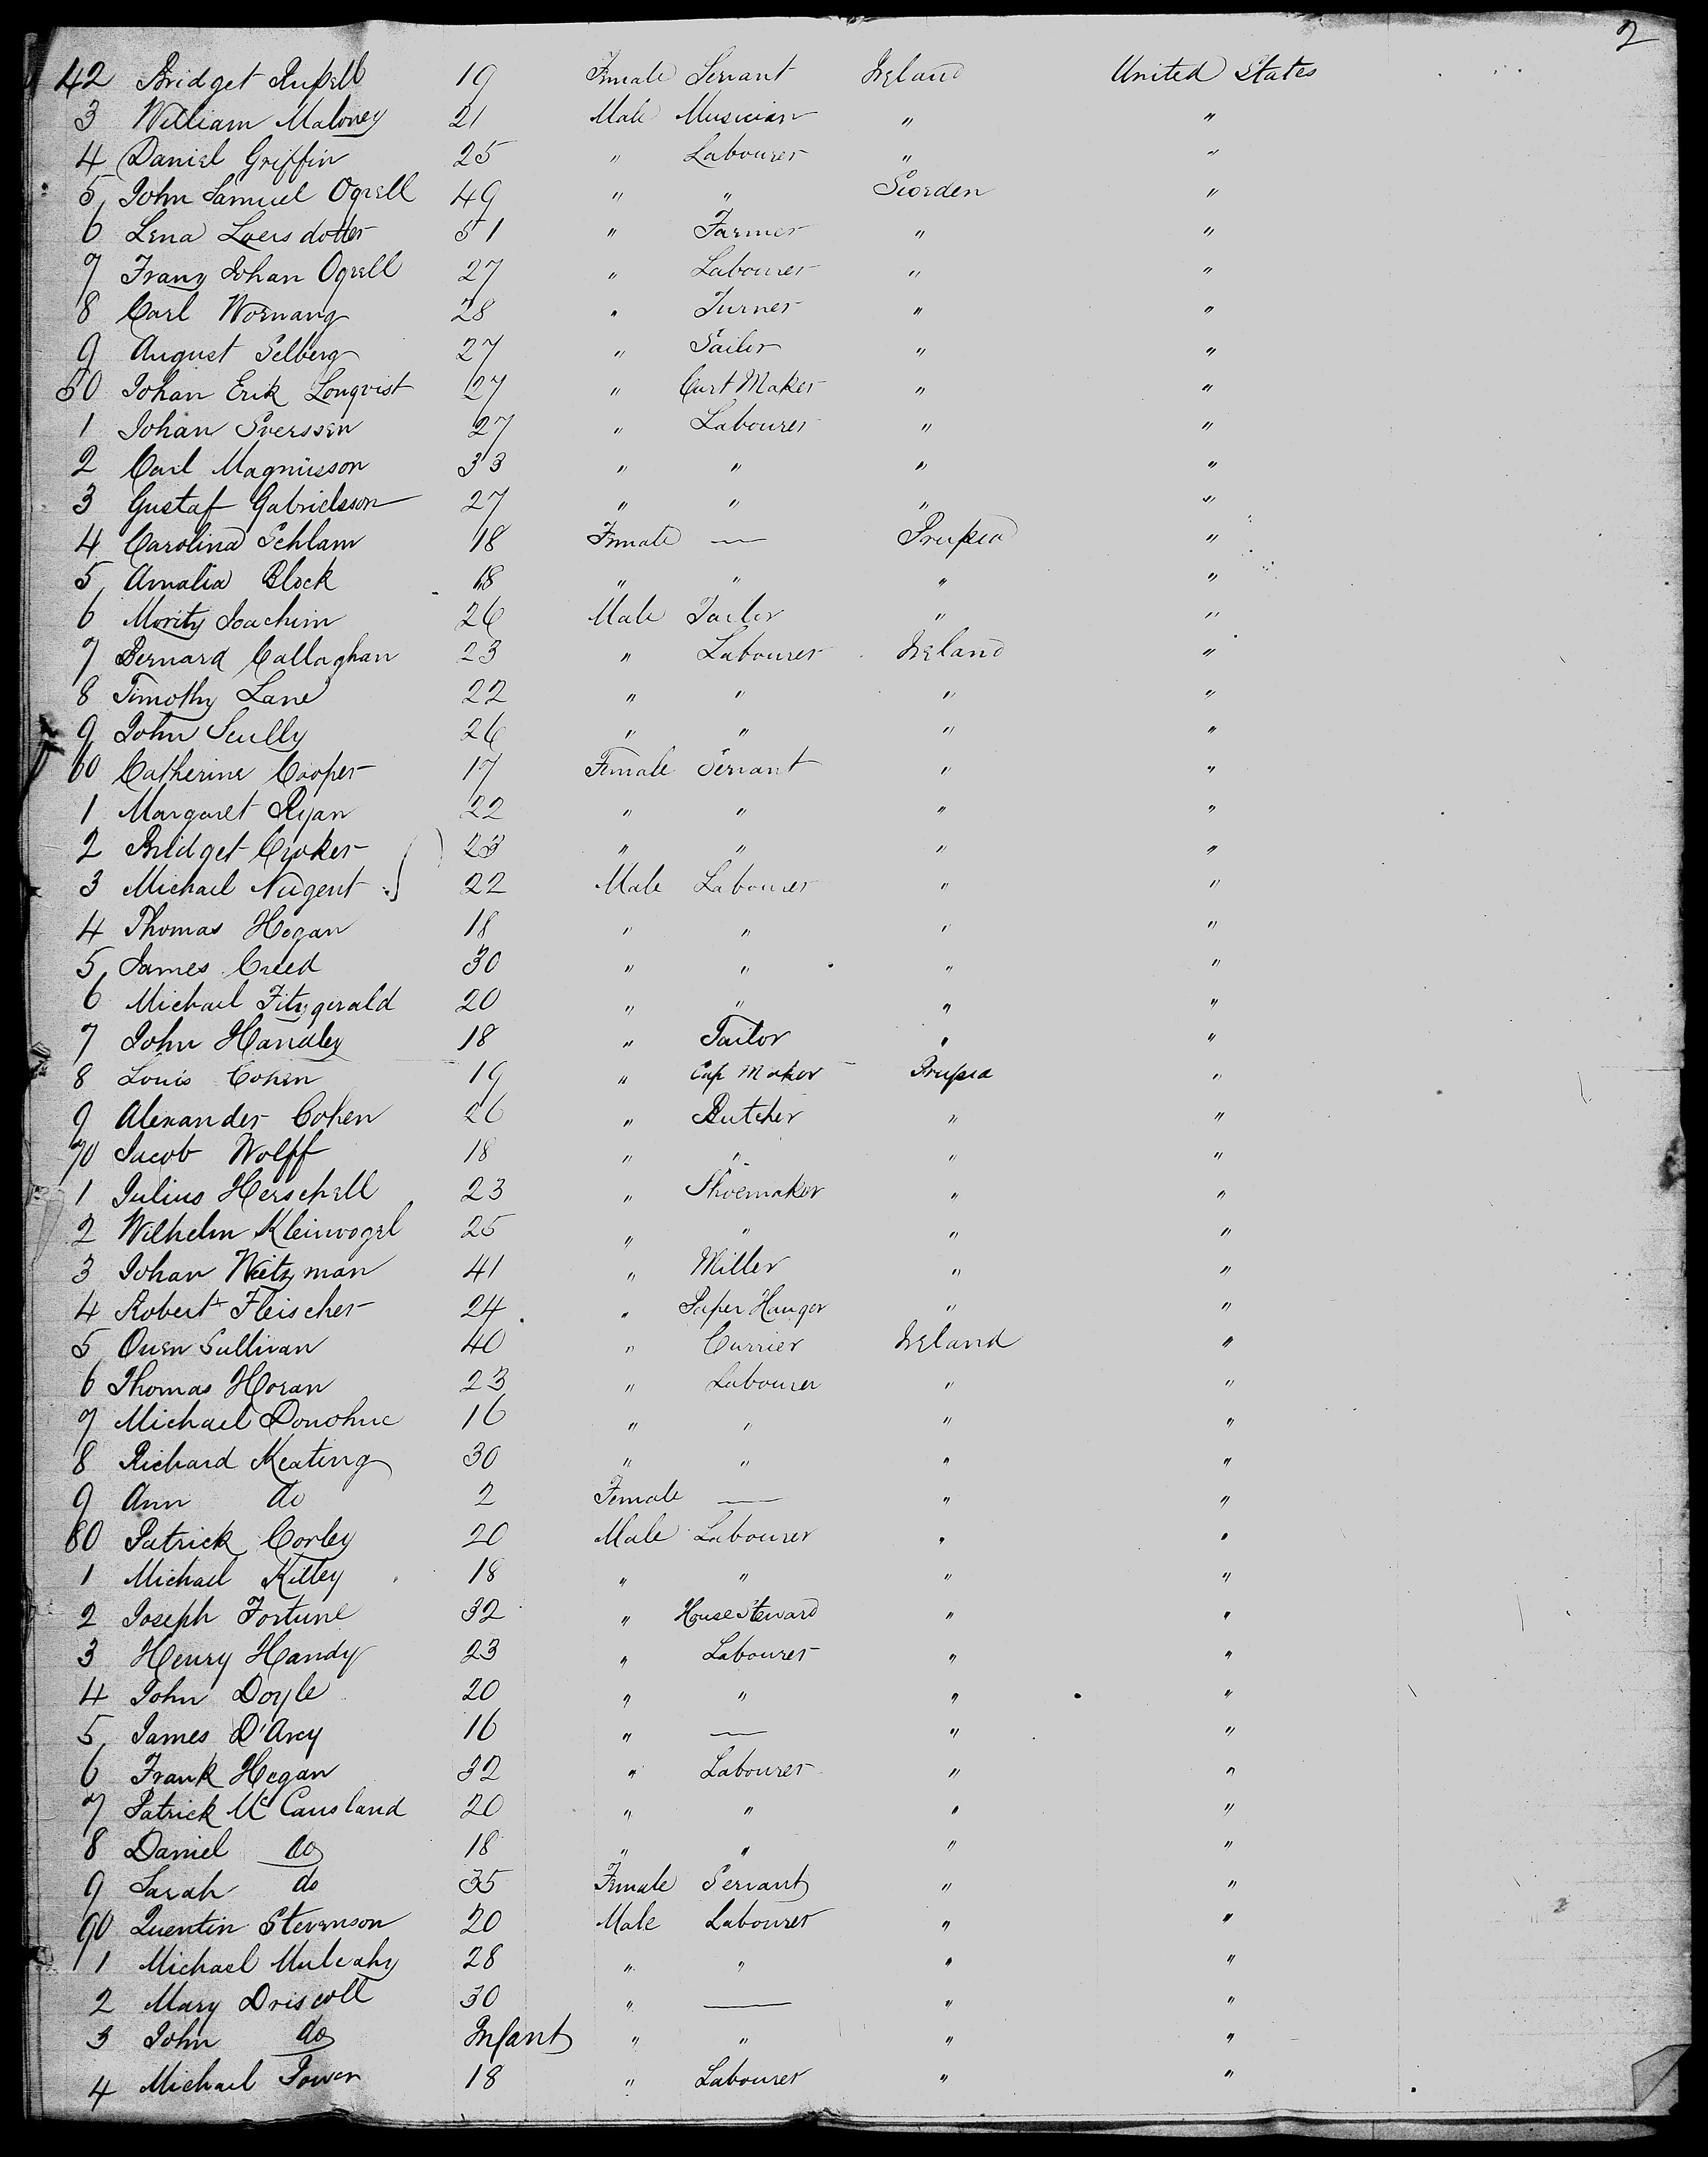 2
42 Bridget Russell 19 Female Servant Ireland United States
3 William Maloney 21 Male Musician " "
4 Daniel Griffin 25 " Labourer " "
5 John Samuel Ogrell 49 " " Sweden "
6 Lena Loersdotter 51 " Farmer " "
7 Franz Johan Ogrell 27 " Labourer " "
8 Carl Wornang 28 " Turner " "
9 August Selberg 27 " Sailor " "
50 Johan Erik Lonqvist 27 " Cart Maker " "
1 Johan Sverssen 27 " Labourer " "
2 Carl Magnusson 33 " " " "
3 Gustaf Gabrielsson 27 " " " "
4 Carolina Schlam 18 Female — Prussia "
5 Amalia Block 18 " " " "
6 Moritz Joachim 26 Male Tailor " "
7 Bernard Callaghan 23 " Labourer Ireland "
8 Timothy Lane 22 " " " "
9 John Scully 26 " " " "
60 Catherine Cooper 17 Female Servant " "
1 Margaret Ryan 22 " " " "
2 Bridget Croker 23 " " " "
3 Michael Nugent 22 Male Labourer " "
4 Thomas Hogan 18 " " " "
5 James Creed 30 " " " "
6 Michael Fitzgerald 20 " " " "
7 John Handley 18 " Tailor " "
8 Louis Cohen 19 " Cap Maker Prussia "
9 Alexander Cohen 26 " Butcher " "
70 Jacob Wolff 18 " " " "
1 Julius Herschell 23 " Shoemaker " "
2 Wilhelm Kleinvogel 25 " " " "
3 Johan Weitzman 41 " Miller " "
4 Robert Fleischer 24 " Paper Hanger " "
5 Owen Sullivan 40 " Currier Ireland "
6 Thomas Horan 23 " Labourer " "
7 Michael Donohue 16 " " " "
8 Richard Keating 30 " " " "
9 Ann do 2 Female — " "
80 Patrick Corley 20 Male Labourer " "
1 Michael Kelley 18 " " " "
2 Joseph Fortune 32 " House Steward " "
3 Henry Handy 23 " Labourer " "
4 John Doyle 20 " " " "
5 James D'Arcy 16 " — " "
6 Frank Hegan 32 " Labourer " "
7 Patrick McCausland 20 " " " "
8 Daniel do 18 " " " "
9 Sarah do 35 Female Servant " "
90 Quentin Stevenson 20 Male Labourer " "
1 Michael Mulcahy 28 " " " "
2 Mary Driscoll 30 " — " "
3 John do Infant " " " "
4 Michael Power 18 " Labourer " "